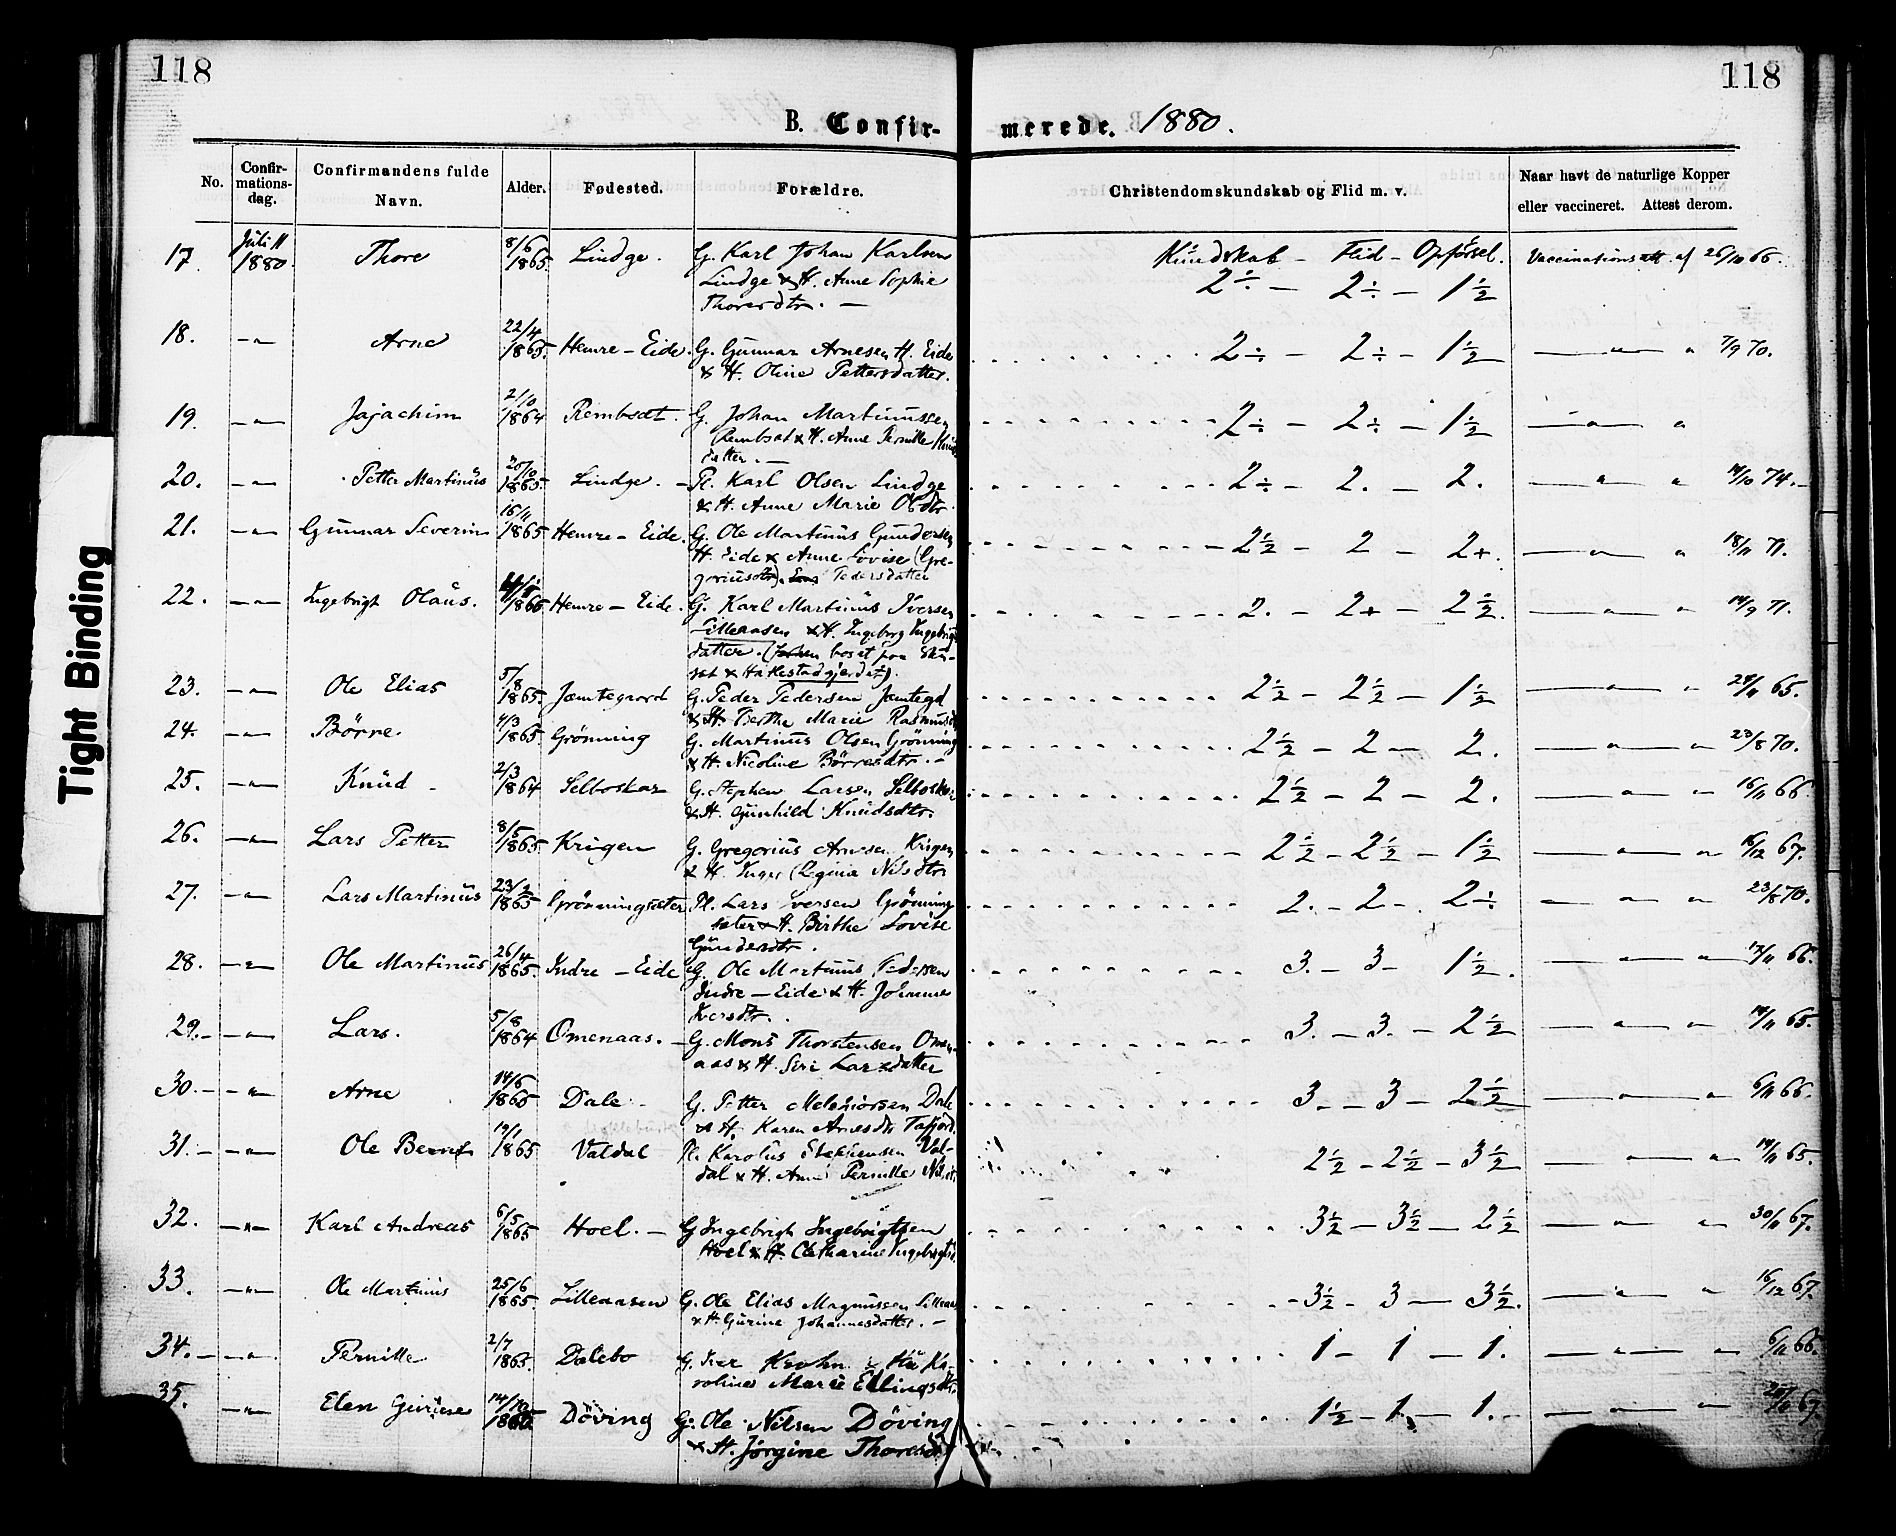 118
118
B. Confir-
merede. 1880.
No.
Confir-
mations-
dag.
Confirmandens fulde
Navn.
Alder.
Fødested.
Forældre.
Christendomskundskab og Flid m. v.
Naar havt de naturlige Kopper
eller vaccineret. Attest derom.
17. Juli 11 1880. Thore 8/6 1865. Lindge. G. Karl Johan Karlsen Kundskab – Flid – Opførsel. Vaccinationsatt. af 26/10 66.
Lindge & H. Anne Sophie 2÷ – 2÷ – 1½
Thoresdtr. —
18. –"– Arne 22/4 1865. Hemre – Eide. G. Gunnar Arnesen H. Eide 2÷ – 2÷ – 1½ –"– " 7/9 70.
& H. Oline Pettersdatter.
19. –"– Jojachim 2/10 1864 Rembsdt. G. Johan Martinussen 2÷ – 2÷ – 1½ –"– "
& H. Anne Pernille
datter. —
20. –"– Petter Martinus 1865. Lindge. – Pl. Karl Olsen Lindge 2÷ – 2. – 2. –"– " 14/10 74. –
& H. Anne Marie Olsdtr.
21. –"– Gunnar Severin 16/11 1865 Hemre – Eide. G. Ole Martinus Gundersen 2½ – 2 – 2+. –"– " 18/11 71.
H. Eide & Anne Lovise (Gre-
goriusdtr). Pedersdatter
22. –"– Ingebrigt Olaus. 1865 Hemre – Eide. G. Karl Martinus Iversen 2. – 2+ – 2½. –"– " 14/9 71.
Lilleaasen & H. Ingeborg
datter. bosat paa
& Hakestadgjerdet).
23. –"– Ole Elias 5/8 1865. Jæmtegaard G. Peder Pedersen Jæmtegd 2½ – 2½ – 1½ –"– " 24/11 65.
& H. Berthe Marie Rasmusd
24. –"– Börre. 4/3 1865. Grönning G. Martinus Olsen Grönning 2½ – 2 – 2. –"– " 23/8 70.
& H. Nicoline Börresdtr. –
25. –"– Knud – 2/3 1864 Selboskar G. Stephen Larsen Selboskar 2½ – 2 – 2. –"– " 16/11 66.
& H. Gunhild Knudsdtr.
26. –"– Lars Petter 8/5 1865. Krigen G. Gregorius Arnesen Krigen 2½ – 2½ – 1½ –"– " 16/12 67.
& H. Inger Regina Nilsdtr
27. –"– Lars Martinus 23/2 1865 Grönningsæter Pl. Lars Iversen Grönning 2. – 2 – 2÷ –"– " 23/8 70.
sæter & H. Birthe Lovise
Gundersdtr.
28. –"– Ole Martinus 26/4 1865. Indre – Eide G. Ole Martinus Pedersen 3. – 3 – 1½. –"– " 17/11 66.
Indre – Eide & H. Johanne
Iversdtr.
29. – –"– Lars. 5/8 1864 Omenaas. – G. Mons Thorstensen Omen- 3. – 3. – 2½ –"– " 14/11 65.
aas & H. Siri Larsdatter
30. – –"– Arne 14/6 1865 Dale – G. Petter Melchiorsen Dale 3. – 3 – 2½ –"– " 6/11 66.
& H. Karen Arnesdtr Tafjord.
31. – –"– Ole Bernt 1865 Valdal Pl. Karolus Stephensen Val- 2½ – 2½ – 3½ –"– " 14/11 65.
dal & H. Anne Pernille
32. –"– Karl Andreas 6/5 1865 Hoel. – G Ingebrigt Ingebrigtsen 3½ – 3½ – 2½ –"– " 30/11 67.
Hoel & H. Catharine
33. –"– Ole Martinus 25/6 1865 Lilleaasen G. Ole Elias Magnussen Lilleaas 3½ – 3 – 3½. –"– " 16/12 67.
& H. Gurine Johannesdatter. –
34. – –"– Pernille 2/7 1865. Dalebo G. Iver Krohn & Hu Ka- 1 – 1 – 1. –"– " 6/11 66.
roline Marie Ellingsdtr.
35. –"– Elen Gurine 14/10 Döving G. Ole Nilsen Döving 1½ – 1. – 1. – –"– "
& H. Jørgine Thoresdtr
Tight Binding